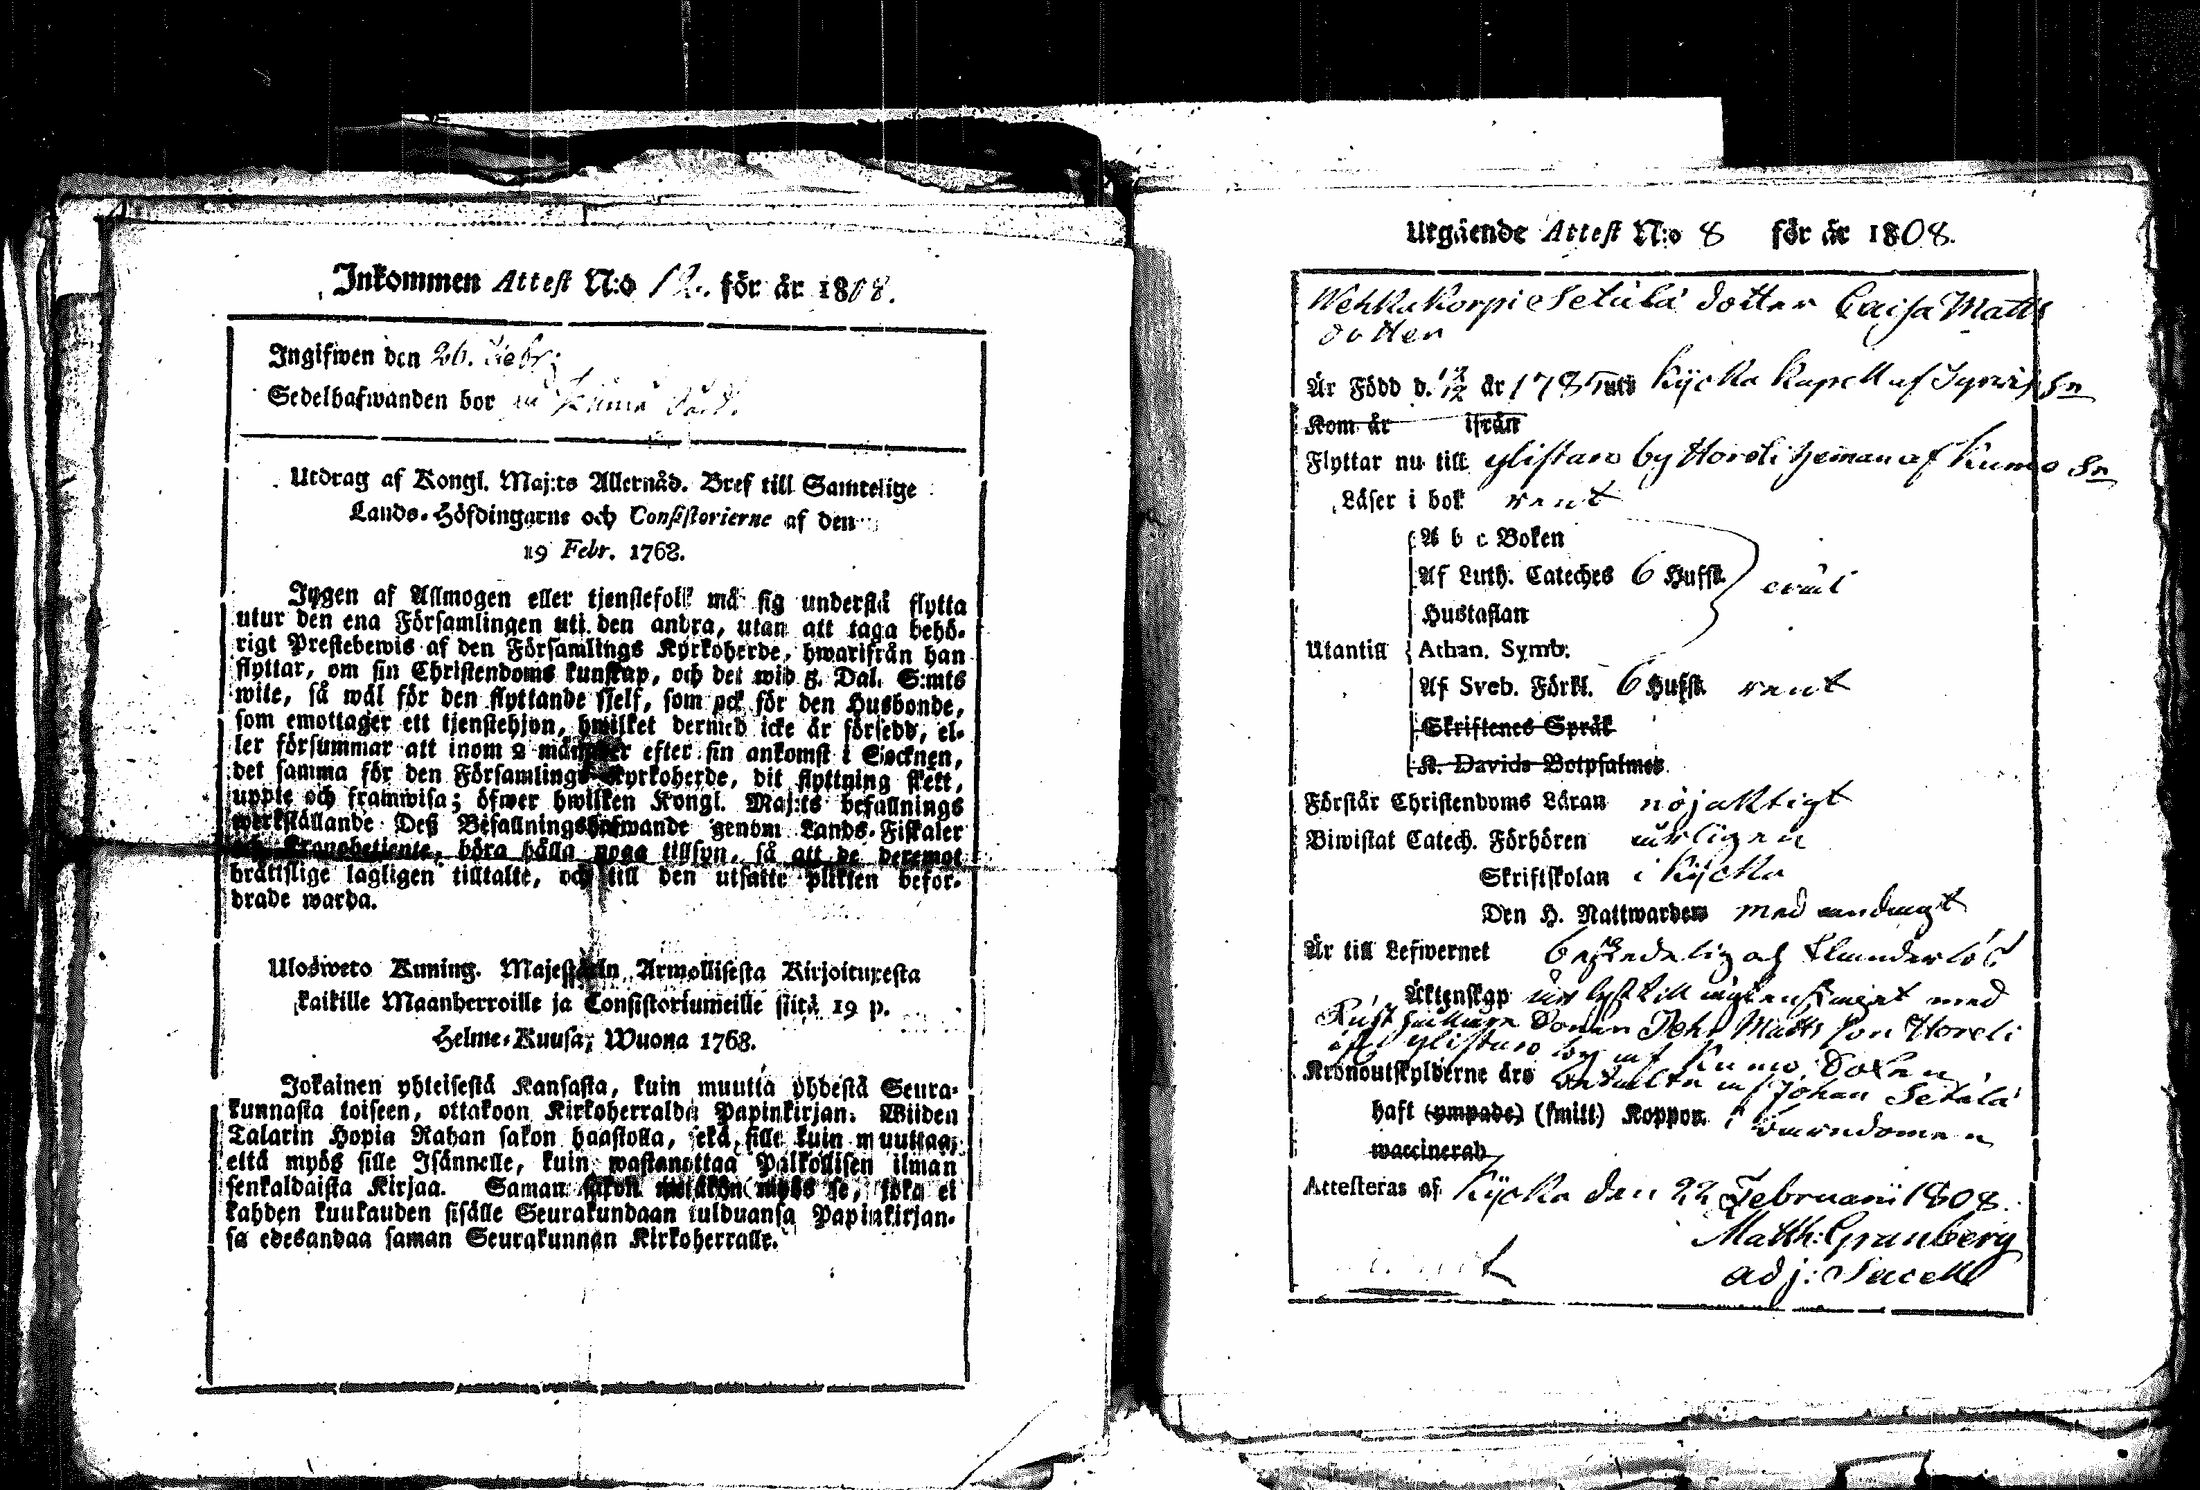 Inkommen Attest N:o 12. för år 1808.
Ingifwen den 26. Febr:
Sedelhafwanden bor
Utdrag af Kongl. Maj:ts Allernåd. Bref till Samtelige
Lands-Höfdingarne och Consistorierne af den
19 Febr. 1768.
Ingen af Allmogen eller tjenstefolk må sig understå flytta
utur den ena Församlingen uti den andra, utan att taga behö-
rigt Prestebewis af den Församlings Kyrkoherde, hwarifrån han
flyttar, om sin Christendoms kunskap, och det wid 5. Dal. S:mts
wite, så wäl för den flyttande sjelf, som ock för den Husbonde,
som emottager ett tjenstehjon, hwilket dermed icke är försedd, el-
ler försummar att inom 2 månader efter sin ankomst i Socknen,
det samma för den Församlings Kyrkoherde, dit flyttning skett,
uppte och framwisa; öfwer hwilken Kongl. Maj:ts befallnings
werkställande Deß Befallningshafwande genom Lands-Fiskaler
och Kronobetiente, böra hålla noga tillsyn, så att de deremot
brätslige lagligen tilltalte, och till den utsatte plikten befor-
drade warda.
Ulosweto Kuning. Majestetin Armollisesta Kirjoituxesta
kaikille Maanherroille ja Consistoriumeille siitä 19 p.
Helme-Kuusa, Wuona 1768.
Jokainen yhteisestä Kansasta, kuin muutta yhdestä Seura-
kunnasta toiseen, ottakoon Kirkoherralda Papinkirjan. Wiiden
Talarin Hopia Rahan sakon haastolla, sekä sille kuin muuttaa,
että myös sille Isännelle, kuin wastanottaa Palkollisen ilman
senkaldaista Kirjaa. Saman sakon wetäkön myös se, joka ei
kahden kuukauden sisälle Seurakundaan tulduansa Papinkirjan-
sa edesandaa saman Seurakunnan Kirkoherralle.
Utgående Attest N:o 8 för år 1808.
Wehkakorpi Setälä dotter Caisa Matts
dotter
Är Född d. år 1785 uti Kycka Kapell af Tyrwis Sn
Kom år ifrån
Flyttar nu till Ylistaro by Horeli heman af Kumo Sn
Läser i bok rent
A b c Boken
Af Luth. Cateches 6 Hufst.
Hustaflan
Utantill Athan. Symb.
Af Sveb. Förkl. 6 Hufst. rent
Skriftenes Språk
K. Davids Botpsalmer
Förstår Christendoms Läran nöjaktigt
Biwistat Catech. Förhören årligen
Skriftskolan i Kycka
Den H. Nattwarden med andagt
Är till Lefwernet beskedelig och klanderlös
Äktenskap är lyst till med
Rusthållare Sonen Joh: Matts son Horeli
ifrå Ylistaro by af Kumo Soken
Kronoutskylderne äro betalte af Johan Setälä
haft (ympade) (smitt) Koppor i barndomen
waccinerad
Attesteras af Kycka den 22 Februarii 1808.
Matth: Granberg
adj: Sacell